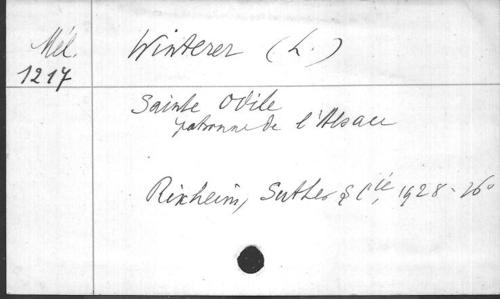 Mél.
1217
Winterer (L.)
Sainte Odile
patronne de l'Alsace
Rixheim, Sutter & Cie, 1928 - 16°